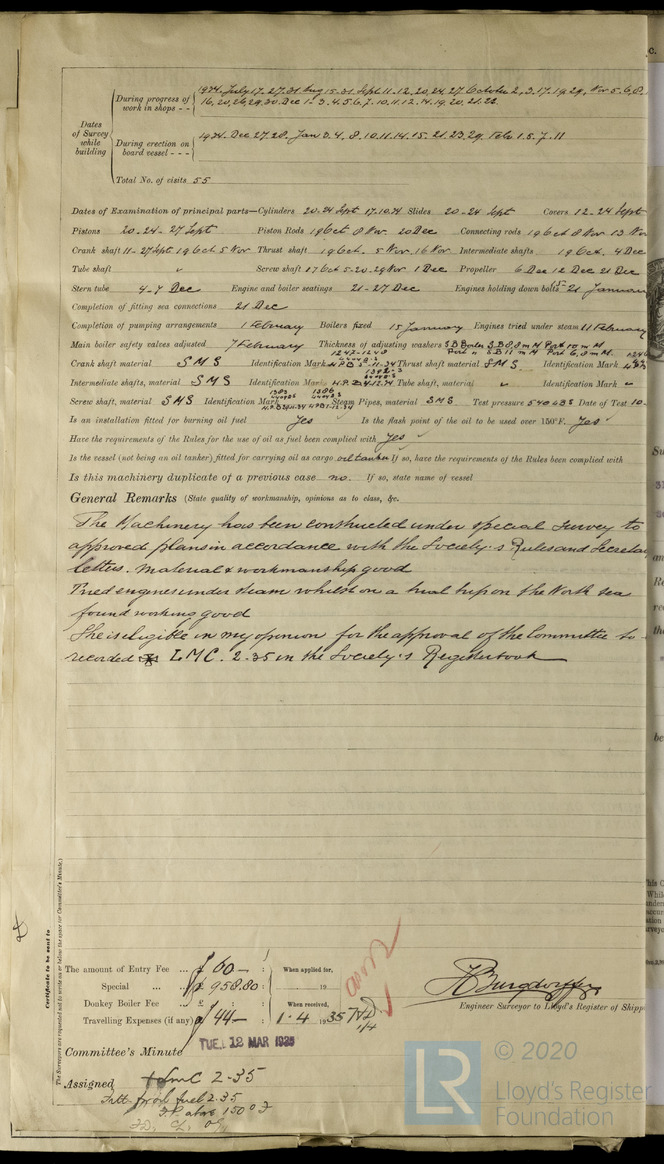 During progress of work in shops - - 1934. July 17. 27. 31 Aug 15. 31. Sept 11. 12. 20. 24. 27 October 2, 3. 17. 19 29, Nov 5. 6. 8.
16, 20, 26, 29, 30. Dec 1. 3. 4. 5. 6. 7. 10. 11. 12. 14. 19. 20. 21. 22
Dates of Survey while building
During erection on board vessel - - - 1934. Dec 27. 28. Jan 3. 4. 8. 10. 11. 14. 15. 21. 23. 29. Feb 1. 5. 7. 11
Total No. of visits 55
Dates of Examination of principal parts—Cylinders 20-24 Sept 17.10.34 Slides 20-24 Sept Covers 12-24 Sept
Pistons 20-24-27 Sept Piston Rods 19 Oct 8 Nov 20 Dec Connecting rods 19 Oct 8 Nov 13 Nov
Crank shaft 11-27 Sept 19 Oct 5 Nov Thrust shaft 19 Oct. 5 Nov 16 Nov Intermediate shafts 19 Oct, 4 Dec
Tube shaft " Screw shaft 17 Oct 5-20-29 Nov 1 Dec Propeller 6 Dec 12 Dec 21 Dec
Stern tube 4-7 Dec Engine and boiler seatings 21-27 Dec Engines holding down bolts 21 January
Completion of fitting sea connections 21 Dec
Completion of pumping arrangements 1 February Boilers fixed 15 January Engines tried under steam 11 February
Main boiler safety valves adjusted 7 February Thickness of adjusting washers
Crank shaft material SMS Identification Mark Thrust shaft material SMS Identification Mark
Intermediate shafts, material SMS Identification Marks Tube shaft, material " Identification Mark "
Screw shaft, material SMS Identification Mark Steam Pipes, material SMS Test pressure 540 & 38 Date of Test 10-
Is an installation fitted for burning oil fuel Yes Is the flash point of the oil to be used over 150°F. Yes
Have the requirements of the Rules for the use of oil as fuel been complied with Yes
Is the vessel (not being an oil tanker) fitted for carrying oil as cargo oil tanker If so, have the requirements of the Rules been complied with
Is this machinery duplicate of a previous case no. If so, state name of vessel
General Remarks (State quality of workmanship, opinions as to class, &c.
The Machinery has been constructed under special survey to
approved plans in accordance with the Society's Rules and Secretar
letters. Material & workmanship good
Tried engines under steam whilst on a trial trip on the North sea
found working good
She is eligible in my opinion for the approval of the Committee to
recorded LMC. 2-35 in the Society's Registerbook
Certificate to be sent to
The Surveyors are requested not to write on or below the space for Committee's Minute.
The amount of Entry Fee ... £ 60— : When applied for,
Special ... ... £ 958.80 : 19
Donkey Boiler Fee ... £ : : When received,
Travelling Expenses (if any) £ 44— : 1.4 1935
Engineer Surveyor to Lloyd's Register of Shipp
Committee's Minute TUE. 12 MAR 1935
Assigned + LMC 2-35
Fitted for oil fuel 2.35
F.P. above 150°F
© 2020
Lloyd's Register
Foundation
LR